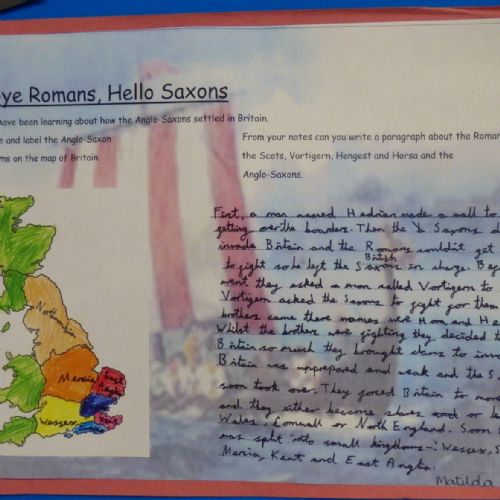 ye Romans, Hello Saxons
have been learning about how the Anglo-Saxons settled in Britain.
e and label the Anglo-Saxon
ms on the map of Britain.
From your notes can you write a paragraph about the Roman
the Scots, Vortigern, Hengest and Horsa and the
Anglo-Saxons.
First, a man named Hadrian made a wall to
getting over the bounders. Then the Saxons d
invade Britain and the Romans couldn't get
British
to fight so he left the Saxons in charge. Beg
ment they asked a man called Vortigern to
Vortigern asked the Saxons to fight for them
brothers came there names were Horn and H
Whilst the brothers were fighting they decided t
Britain so much they brought in
Britain was unprepared and weak and the S
soon took over. They forced Britain to move
and they either become slaves and or l
Wales, Cornwall or North England. Soon
was split into small kingdoms-: Wessex, S
Mercia, Kent and East Anglia.
Matilda
Mercia
East
Wessex
Kent